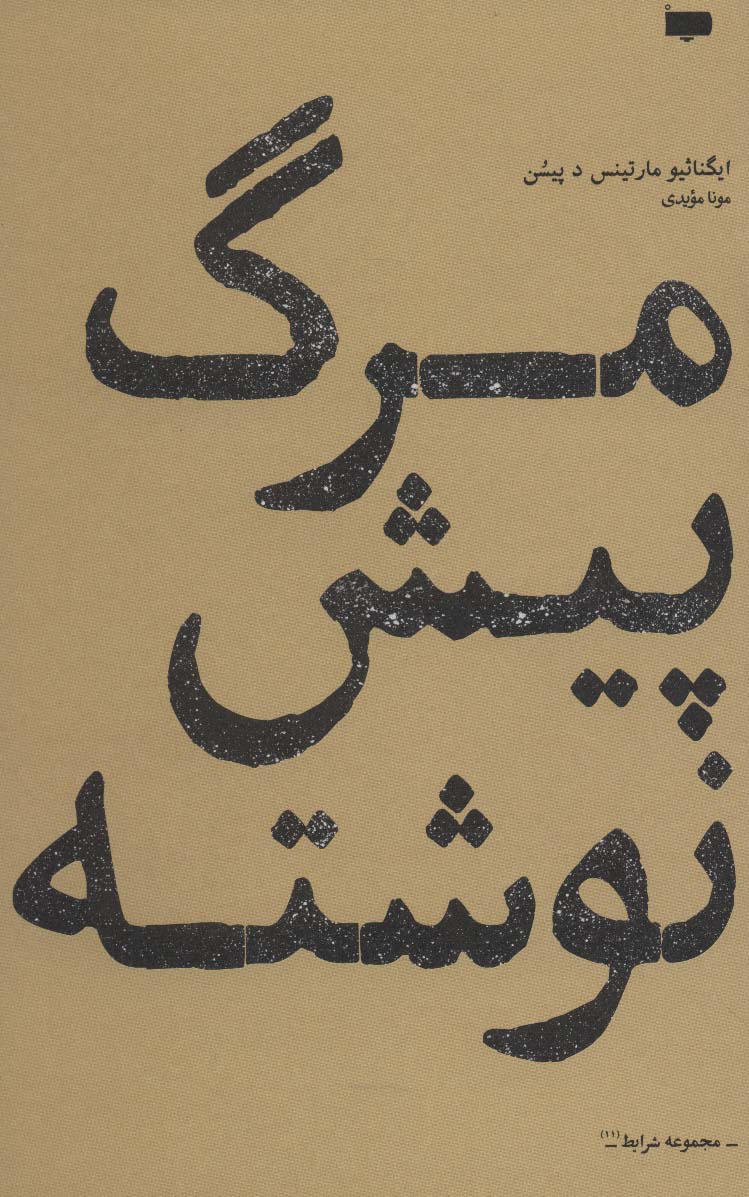 ایگناثیو مارتینس د پیسُن
مونا مؤیدی
مرگ
پیش
نوشته
ـ مجموعه شرایط (۱۱) ـ